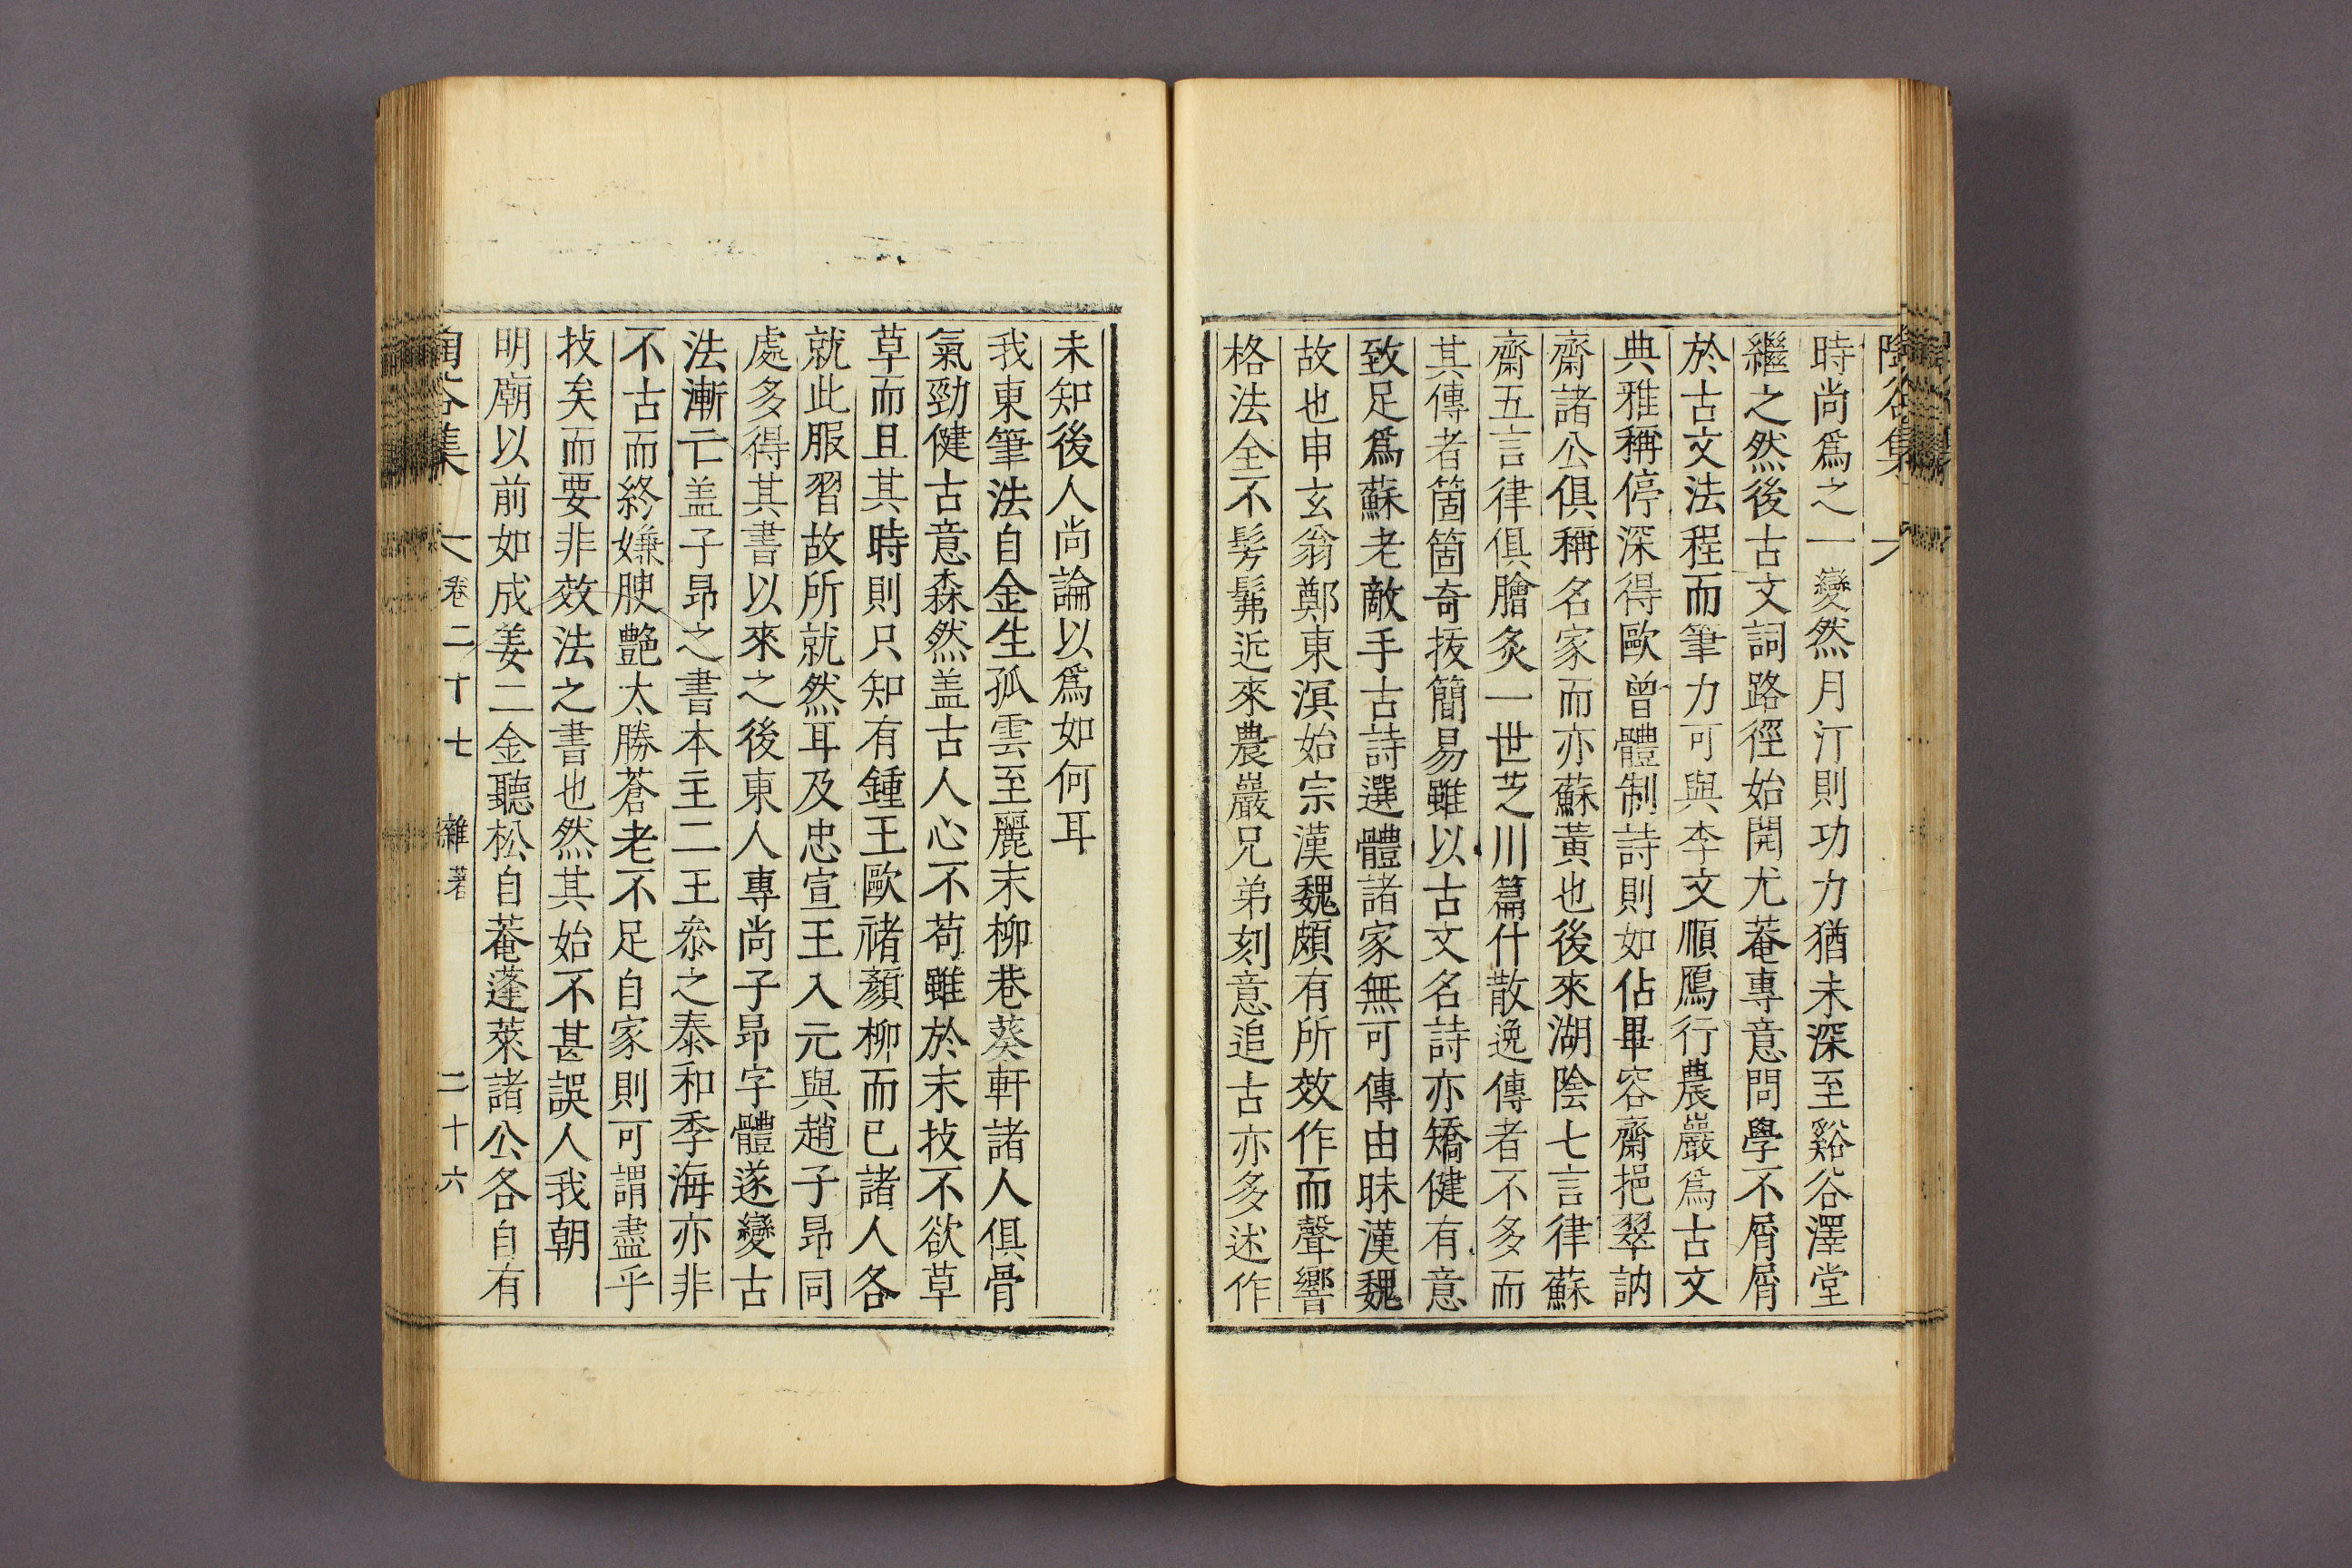 陶谷集
時尚爲之一變然月汀則功力猶未深至谿谷澤堂
繼之然後古文詞路徑始開尤菴專意問學不屑屑
於古文法程而筆力可與李文順鴈行農巖爲古文
典雅稱停深得歐曾體制詩則如佔畢容齋挹翠訥
齋諸公俱稱名家而亦蘇黃也後來湖陰七言律蘇
齋五言律俱膾炙一世芝川篇什散逸傳者不多而
其傳者箇箇奇拔簡易雖以古文名詩亦矯健有意
致足爲蘇老敵手古詩選體諸家無可傳由昧漢魏
故也申玄翁鄭東溟始宗漢魏頗有所效作而聲響
格法全不髣髴近來農巖兄弟刻意追古亦多述作
未知後人尚論以爲如何耳
我東筆法自金生孤雲至麗末柳巷葵軒諸人俱骨
氣勁健古意森然盖古人心不苟雖於末技不欲草
草而且其時則只知有鍾王歐禇顏柳而已諸人各
就此服習故所就然耳及忠宣王入元與趙子昻同
處多得其書以來之後東人專尚子昻字體遂變古
法漸亡盖子昻之書本主二王叅之泰和季海亦非
不古而終嫌腴艶太勝蒼老不足自家則可謂盡乎
技矣而要非效法之書也然其始不甚誤人我朝
明廟以前如成姜二金聽松自菴蓬萊諸公各自有
陶谷集 卷二十七 雜著 二十六